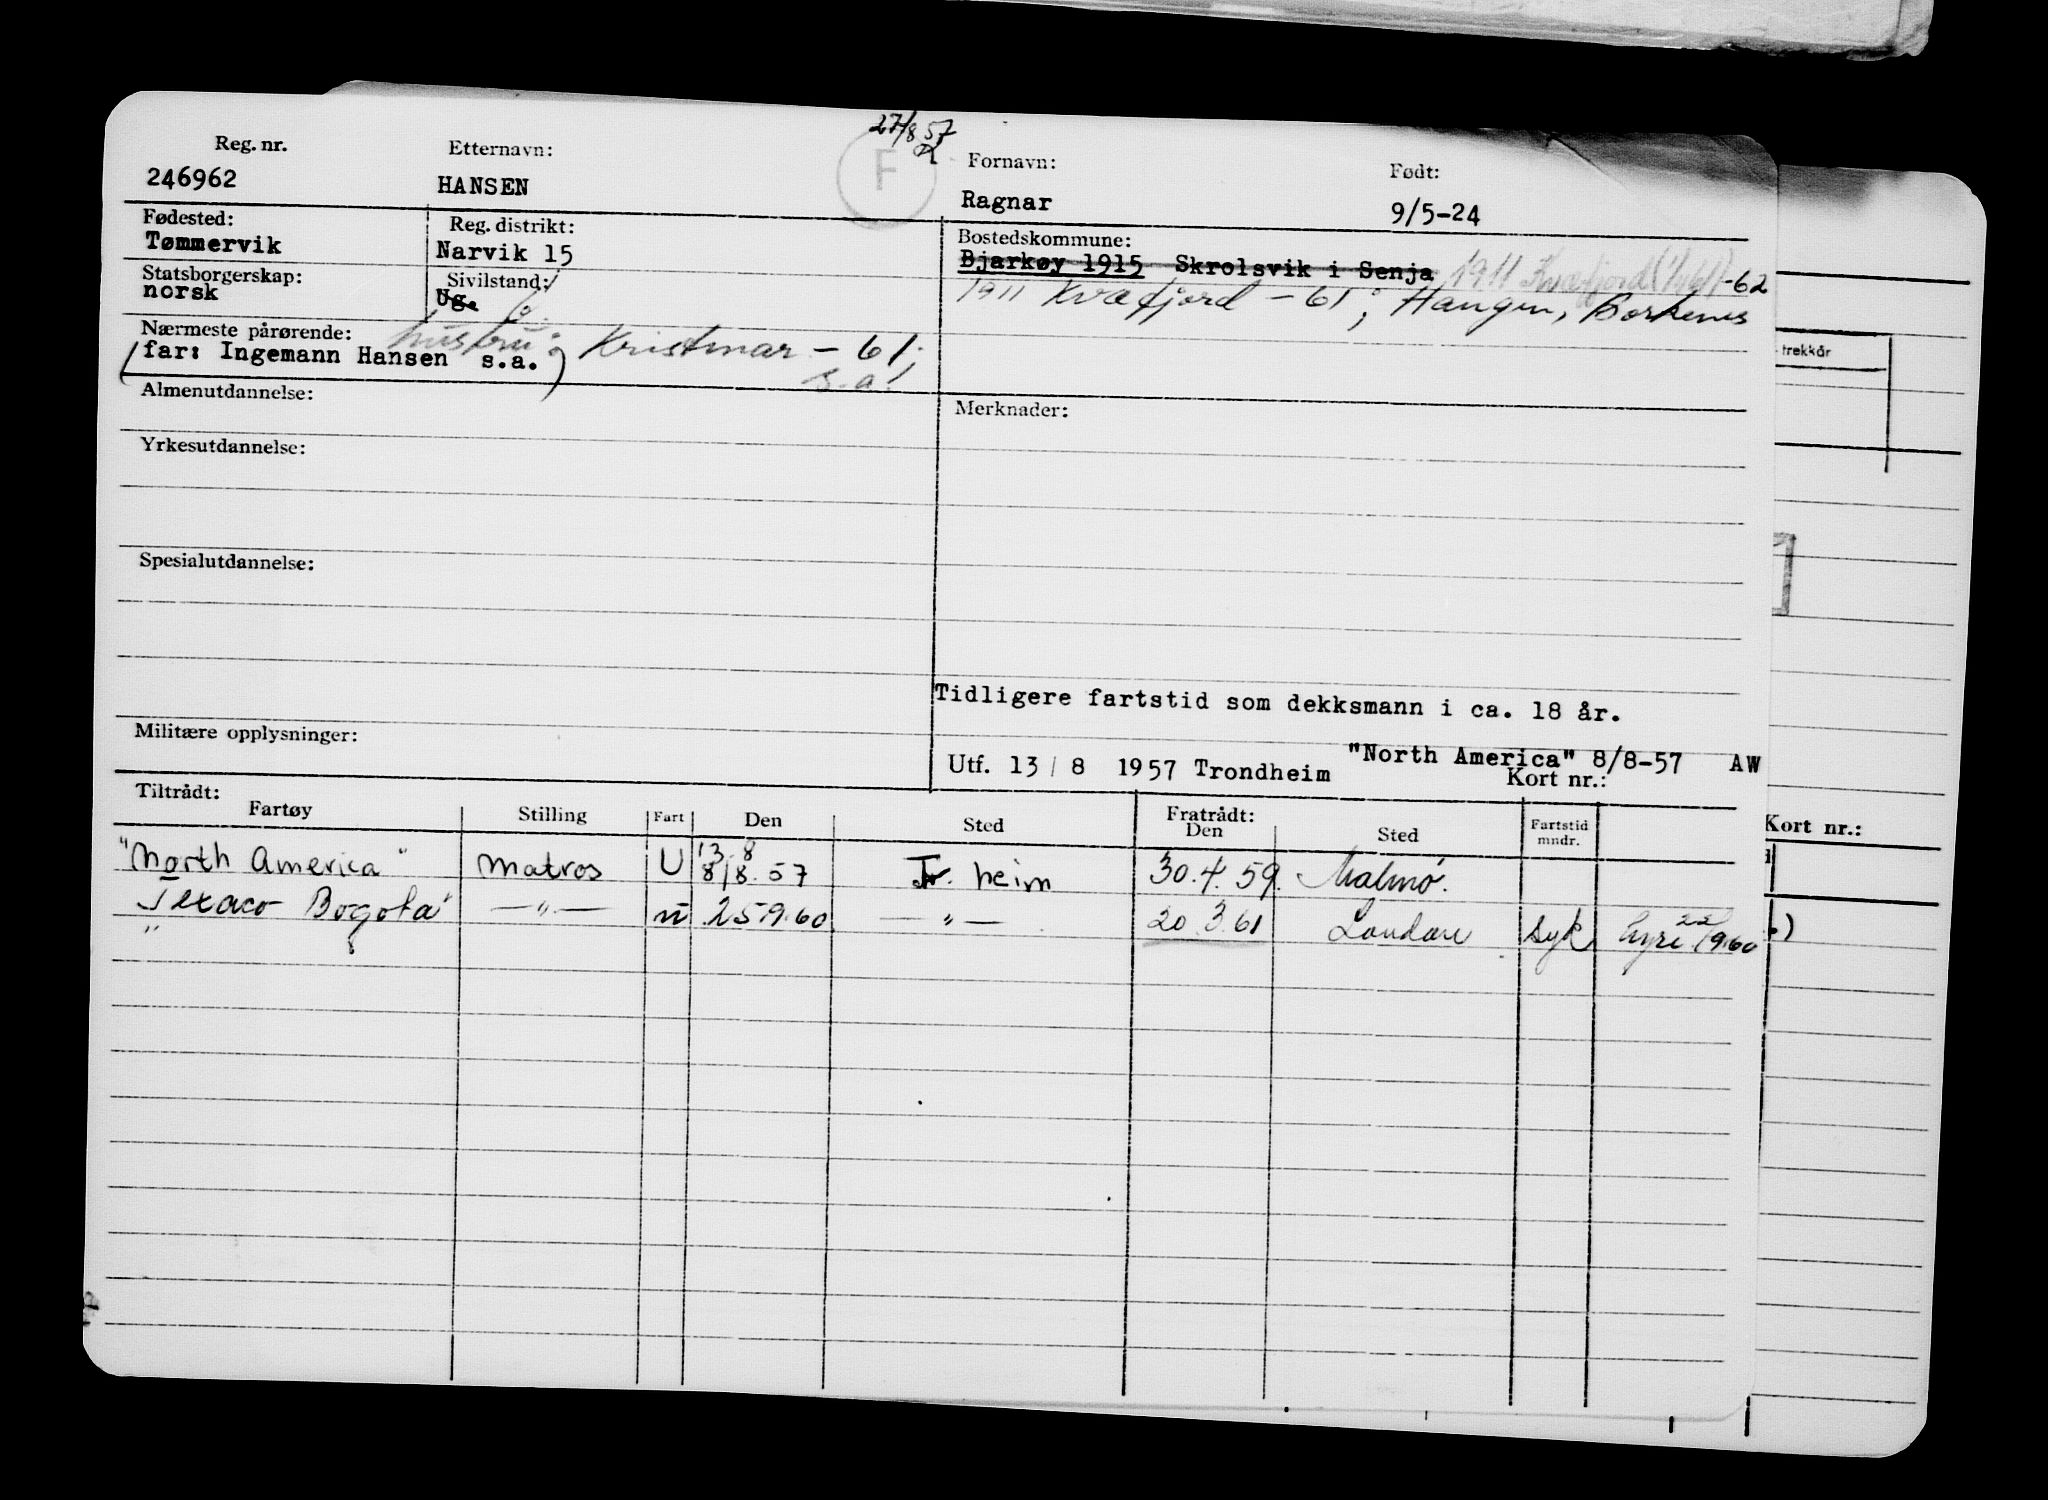 27/8 57
F
Reg. nr. Etternavn: Fornavn: Født:
246962 HANSEN Ragnar 9/5-24
Fødested: Reg. distrikt: Bostedskommune:
Tømmervik Narvik 15 Bjarkøy 1915 Skrolsvik i Senja 1911 Kvæfjord (1/1 61) -62
Statsborgerskap: Sivilstand: 1911 Kvæfjord - 61; Haugen, Borkenes
norsk Ug.
Nærmeste pårørende: hustru: Kristmar - 61; s.a.
(far: Ingemann Hansen s.a.)
Almenutdannelse: Merknader:
Yrkesutdannelse:
Spesialutdannelse:
Tidligere fartstid som dekksmann i ca. 18 år.
Militære opplysninger:
"North America" 8/8-57 AW
Utf. 13 / 8 1957 Trondheim Kort nr.:
Tiltrådt: Fratrådt:
Fartøy Stilling Fart Den Sted Den Sted Fartstid mndr.
13.8
"North America" Matros U 8/8.57 Tr.heim 30.4.59. Malmö.
"Texaco Bogota" —"— u 25.9.60 —"— 20.3.61 London syk hyre 22/9.60
trekkår
Kort nr.: